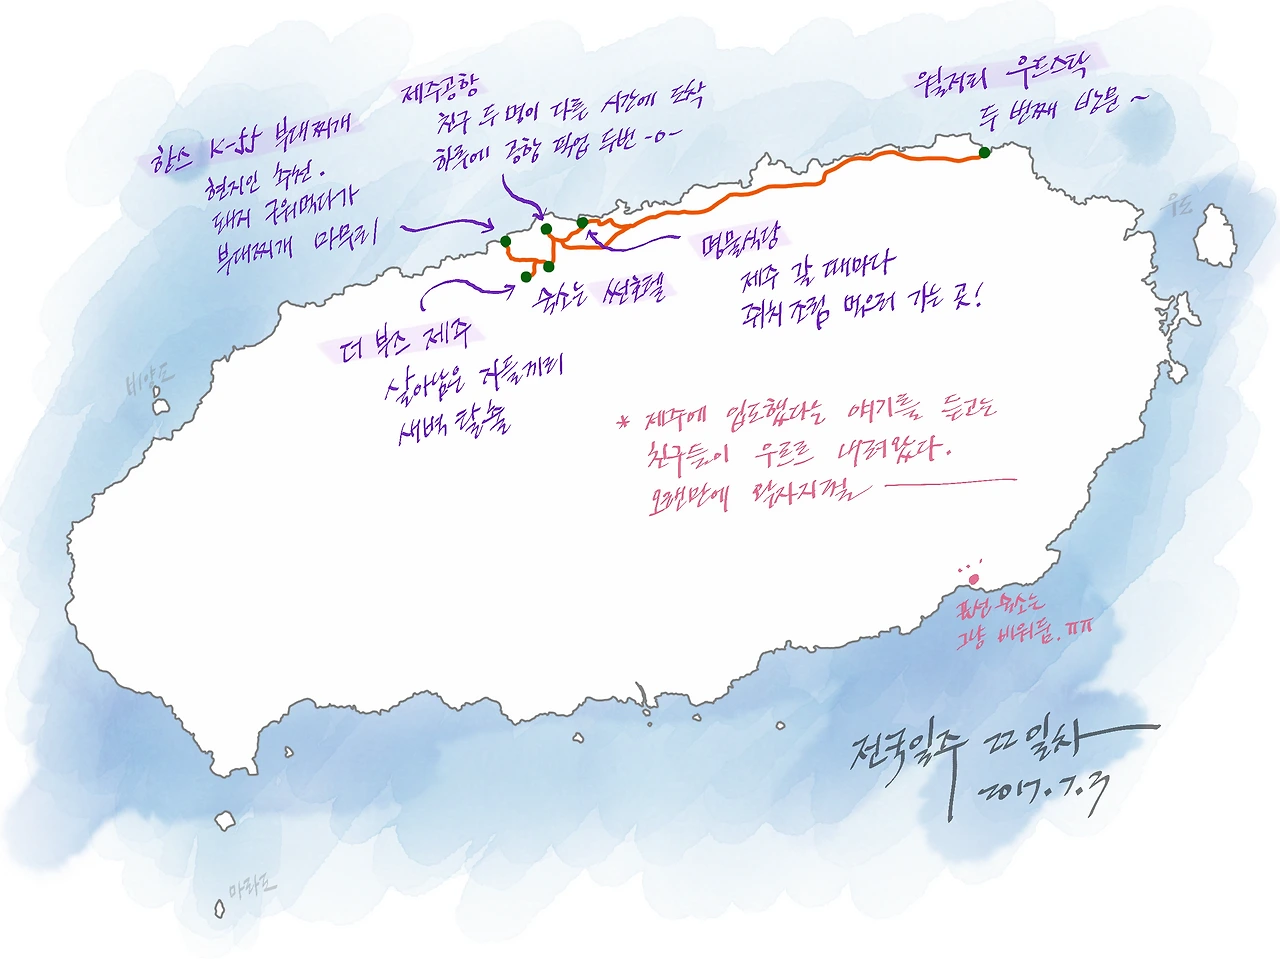 제주공항
친구 두 명이 다른 시간에 도착
하루에 공항 픽업 두번 -o-
월정리 우드스탁
두 번째 방문 ~
한스 K-ff 부대찌개
현지인 추천.
돼지 구워먹다가
부대찌개 마무리
우도
명물식당
제주 갈 때마다
쥐치조림 먹으러 가는 곳!
숙소는 썬호텔
더 부스 제주
살아남은 자들끼리
새벽 탈출
비양도
* 제주에 입도했다는 얘기를 듣고는
친구들이 우르르 내려왔다.
오랜만에 왁자지껄
표선 숙소는
그냥 비워둠. ㅠㅠ
전국일주 22일차
2017.7.3
마라도